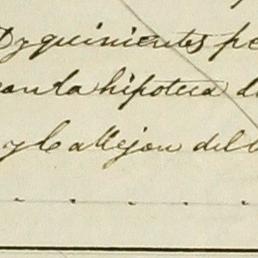 y quinientos pe
con la hipoteca d
y Callejon del